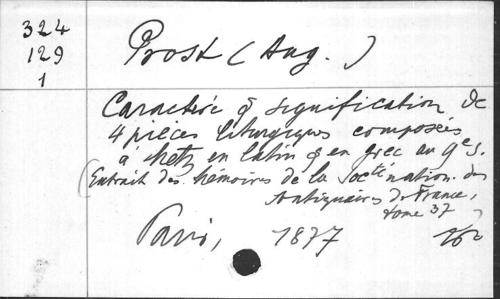 324
129
1
Prost (Aug.)
Caractère & signification de
4 pièces liturgiques composées
à Metz en latin & en grec au 9e s.
(Extrait des Mémoires de la Socté nation. des
Antiquaires de France,
tome 37)
Paris, 1877 16o